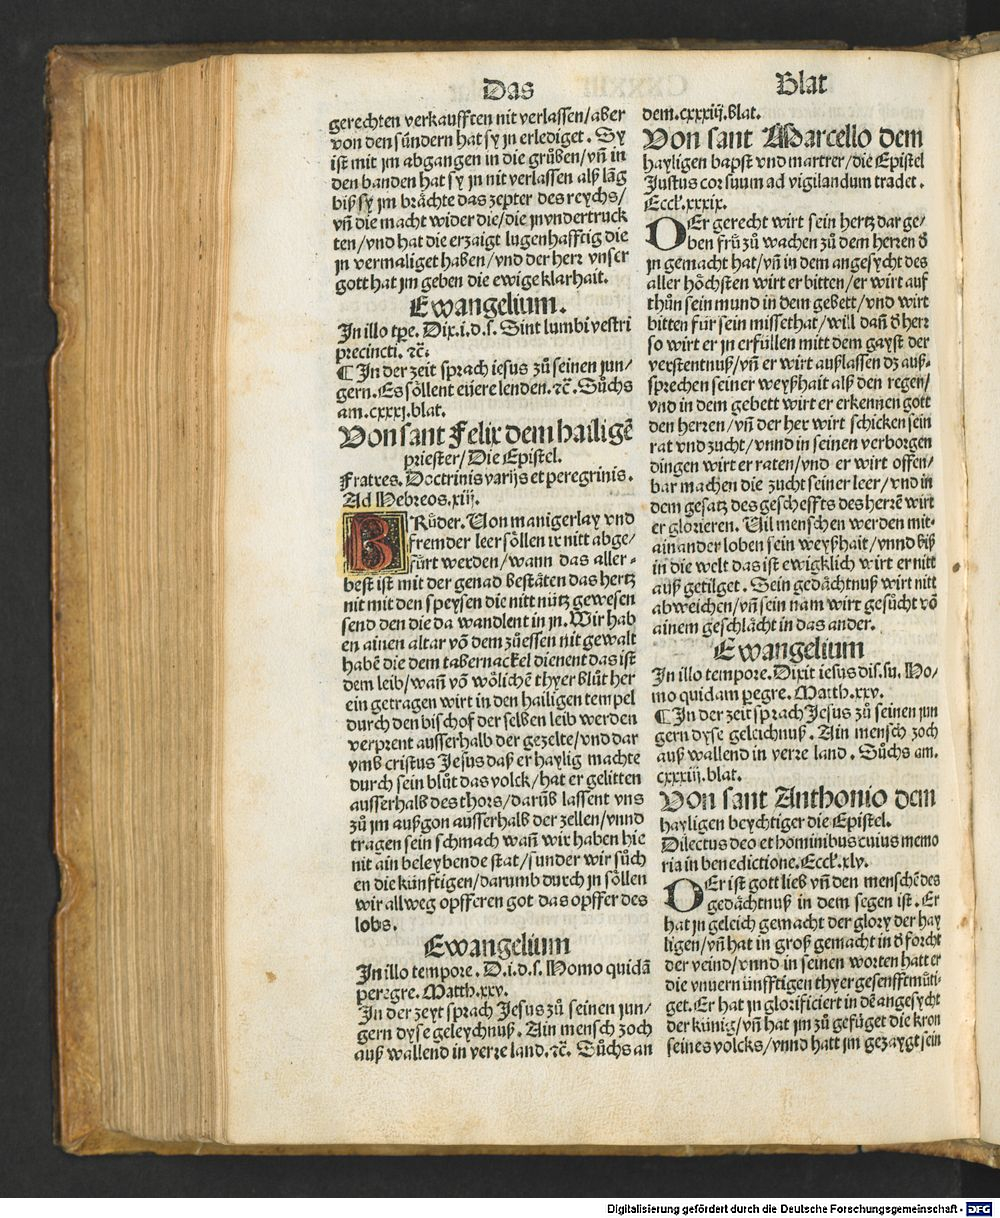 Das
gerechten verkaufften nit verlassen/aber
von den sündern hat sy jn erlediget. Sy
ist mit jm abgangen in die grůben/vñ in
den banden hat sy jn nit verlassen alß lãg
biß sy jm brächte das zepter des reychs/
vñ die macht wider die/die jn vndertruck
ten/vnd hat die erzaigt lugenhafftig die
jn vermaliget haben/vnd der herr vnser
gott hat jm geben die ewige klarhait.
Ewangelium.
In illo tpe. Dix.i.d.s. Sint lumbi vestri
precincti. ⁊c̃.
¶ In der zeit sprach iesus zů seinen jun/
gern. Es söllent eüere lenden. ⁊c̃. Sůchs
am.cxxxj.blat.
Von sant Felix dem hailigẽ
priester/Die Epistel.
Fratres. Doctrinis varijs et peregrinis.
Ad Hebreos.xiij.
BRůder. Von manigerlay vnd
fremder leer söllen ir nitt abge/
fürt werden/wann das aller-
best ist mit der genad bestäten das hertz
nit mit den speysen die nitt nütz gewesen
send den die da wandlent in jn. Wir hab
en ainen altar võ dem zůessen nit gewalt
habẽ die dem tabernackel dienent das ist
dem leib/wañ võ wölichẽ thyer blůt her
ein getragen wirt in den hailigen tempel
durch den bischof der selben leib werden
verprent ausserhalb der gezelte/vnd dar
vmb cristus Jesus daß er haylig machte
durch sein blůt das volck/hat er gelitten
ausserhalb des thors/darüb lassent vns
zů jm außgon ausserhalb der zellen/vnnd
tragen sein schmach wañ wir haben hie
nit ain beleybende stat/sunder wir sůch
en die künftigen/darumb durch jn söllen
wir allweg opfferen got das opffer des
lobs.
Ewangelium
In illo tempore. D.i.d.s. Homo quidã
peregre. Matth.xxv.
In der zeyt sprach Jesus zů seinen jun/
gern dyse geleychnuß. Ain mensch zoch
auß wallend in verre land.⁊c̃. Sůchs an
Blat
dem.cxxxiij.blat.
Von sant Marcello dem
hayligen bapst vnd martrer/die Epistel
Justus cor suum ad vigilandum tradet.
Eccl̃.xxxix.
DEr gerecht wirt sein hertz dar ge/
ben frů zů wachen zů dem herren d̃
jn gemacht hat/vñ in dem angesycht des
aller höchsten wirt er bitten/er wirt auf
thůn sein mund in dem gebett/vnd wirt
bitten für sein missethat/will dañ d̃ herr
so wirt er jn erfüllen mitt dem gayst der
verstentnuß/vñ er wirt außlassen dz auß-
sprechen seiner weyßhait alß den regen/
vnd in dem gebett wirt er erkennen gott
den herren/vñ der her wirt schicken sein
rat vnd zucht/vnnd in seinen verborgen
dingen wirt er raten/vnd er wirt offen/
bar machen die zucht seiner leer/vnd in
dem gesatz des gescheffts des herrẽ wirt
er glorieren. Vil menschen werden mit-
ainander loben sein weyßhait/vnnd biß
in die welt das ist ewigklich wirt er nitt
auß getilget. Sein gedächtnuß wirt nitt
abweichen/vñ sein nam wirt gesůcht võ
ainem geschlächt in das ander.
Ewangelium
In illo tempore. Dixit iesus dis.su. Ho/
mo quidam peregre. Matth.xxv.
¶ In der zeit sprach Jesus zů seinen jun
gern dyse geleichnuß. Ain mensch zoch
auß wallend in verre land. Sůchs am.
cxxxiij.blat.
Von sant Anthonio dem
hayligen beychtiger die Epistel.
Dilectus deo et hominibus cuius memo
ria in benedictione. Eccl̃.xlv.
DEr ist gott lieb vñ den menschẽ des
gedächtnuß in dem segen ist. Er
hat jn geleich gemacht der glory der hay
ligen/vñ hat in groß gemacht in d̃ forcht
der veind/vnnd in seinen worten hatt er
die vnuernünfftigen thyer gesenfftmüti-
get. Er hat jn glorificiert in dẽ angesycht
der künig/vñ hat jm zů gefüget die kron
seines volcks/vnnd hatt jm gezaygt sein
Digitalisierung gefördert durch die Deutsche Forschungsgemeinschaft - DFG